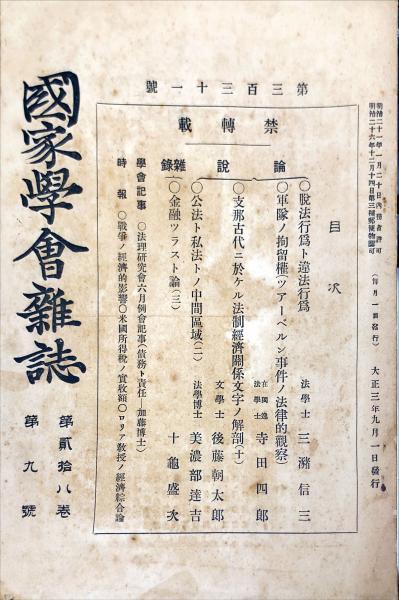 明治二十一年一月二十日內務省許可
明治二十六年十二月十四日第三種郵便物認可
(每月一回發行) 大正三年九月一日發行
第三百三十一號
禁轉載
目次
論說
○脫法行爲ト違法行爲 法學士 三潴信三
○軍隊ノ拘留權(ツアーベルン事件ノ法律的觀察) 在獨逸 法學士 寺田四郎
○支那古代ニ於ケル法制經濟關係文字ノ解剖(十) 文學士 後藤朝太郎
○公法ト私法トノ中間區域(二) 法學博士 美濃部達吉
雜錄
○金融ツラスト論(三) 十龜盛次
學會記事 ○法理硏究會六月例會記事(債務ト責任 加藤博士)
時報 ○戰爭ノ經濟的影響○米國所得稅ノ實收額○ロリア敎授ノ經濟綜合論
國家學會雜誌
第貳拾八卷
第九號